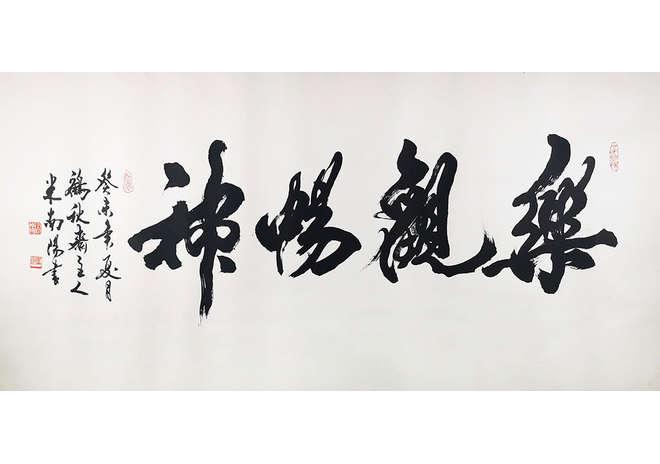 樂觀暢神
癸未年夏月
秋齋主人
米南陽書